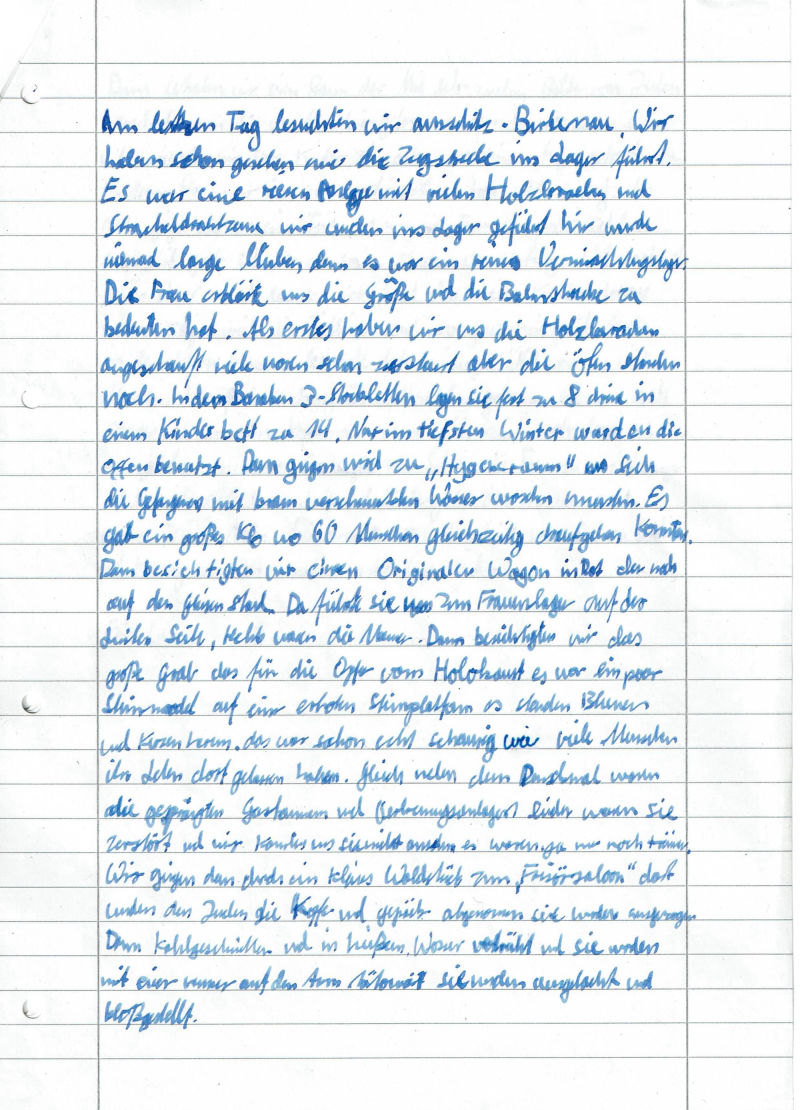 Am letzten Tag besuchten wir auschwitz - Birkenau. Wir
haben schon gesehen wie die Zugstrecke ins Lager führt.
Es war eine riesen Anlage mit vielen Holzbaraken und
Stracheldrahtzeune wir wurden ins Lager geführt hir wurde
niemad lange bliben denn es war ein reines Vernischtungslager.
Die Frau erklärte uns die Größe und die Bahnstrecke zu
bedeuten hat. Als erstes haben wir uns die Holzbaraken
angeschauft viele waren schon zerstöurt aber die öfen standen
noch. In den Baraken 3-Stockbetten lagen sie fest zu 8 drine in
einem Kinder bett zu 14. Nur im tiefsten Winter wurden die
offen benutzt. Dann gingen wird zu „Hygeneraum" wo Sich
die Gefangene mit braun verschmutzten Wasser waschen mussten. Es
gab ein großes Klo wo 60 Menschen gleichzeitig draufgehen konnten.
Dann besichtigten wir einen Originalen Wagon in Rot der noch
auf den Gleisen stand. Da führte sie uns zum Frauenlager auf der
linken Seite, rechts waren die Männer. Dann besichtigten wir das
große Grab das für die Opfer vom Holokaust es war ein paar
auf einer erhoten Steinplatform es standen Blumen
und Kerzen herum. das war schon echt schaurig wie viele Menschen
ihr Leben dort gelassen haben. Gleich neben dem Denkmal waren
die gesprängten Gaskammern und (Verbrenungsanlagen) leider waren sie
zerstört und wir konnten uns sie nicht ansehen es waren ja nur noch trümer.
Wir gingen dan durch ein kleines Waldstück zum „Frisörsaloon" dort
wurden den Juden die Koffer und gepäck abgenomen sie wurden ausgezogen
Dann kahlgeschnitten und in heißem Wasser und sie wurden
mit einer numer auf den Arm tätowirt sie wurden ausgelacht und
bloßgestellt.